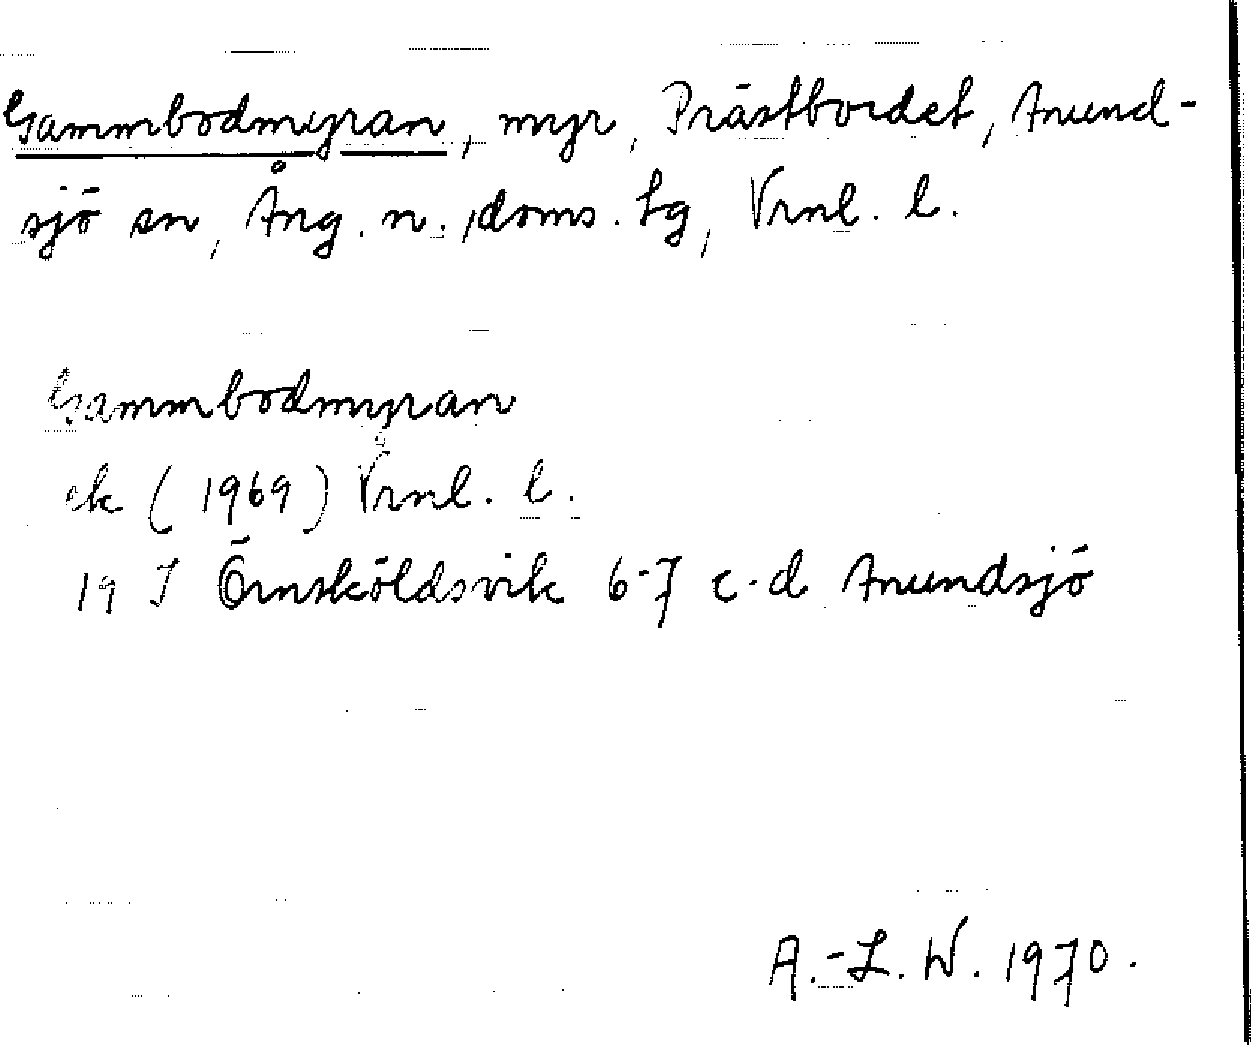 Gammbodmyran, myr, Prästbordet, Anund-
sjö sn, Ång. n. doms. lg, Vrnl. l.
Gammbodmyran
ek (1969) Vrnl. l.
19 I Örnsköldsvik 6-7 c-d Anundsjö
A.-L. W. 1970.